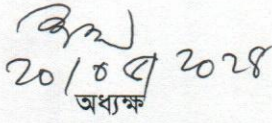 ২০/০৫/২০২৪
অধ্যক্ষ